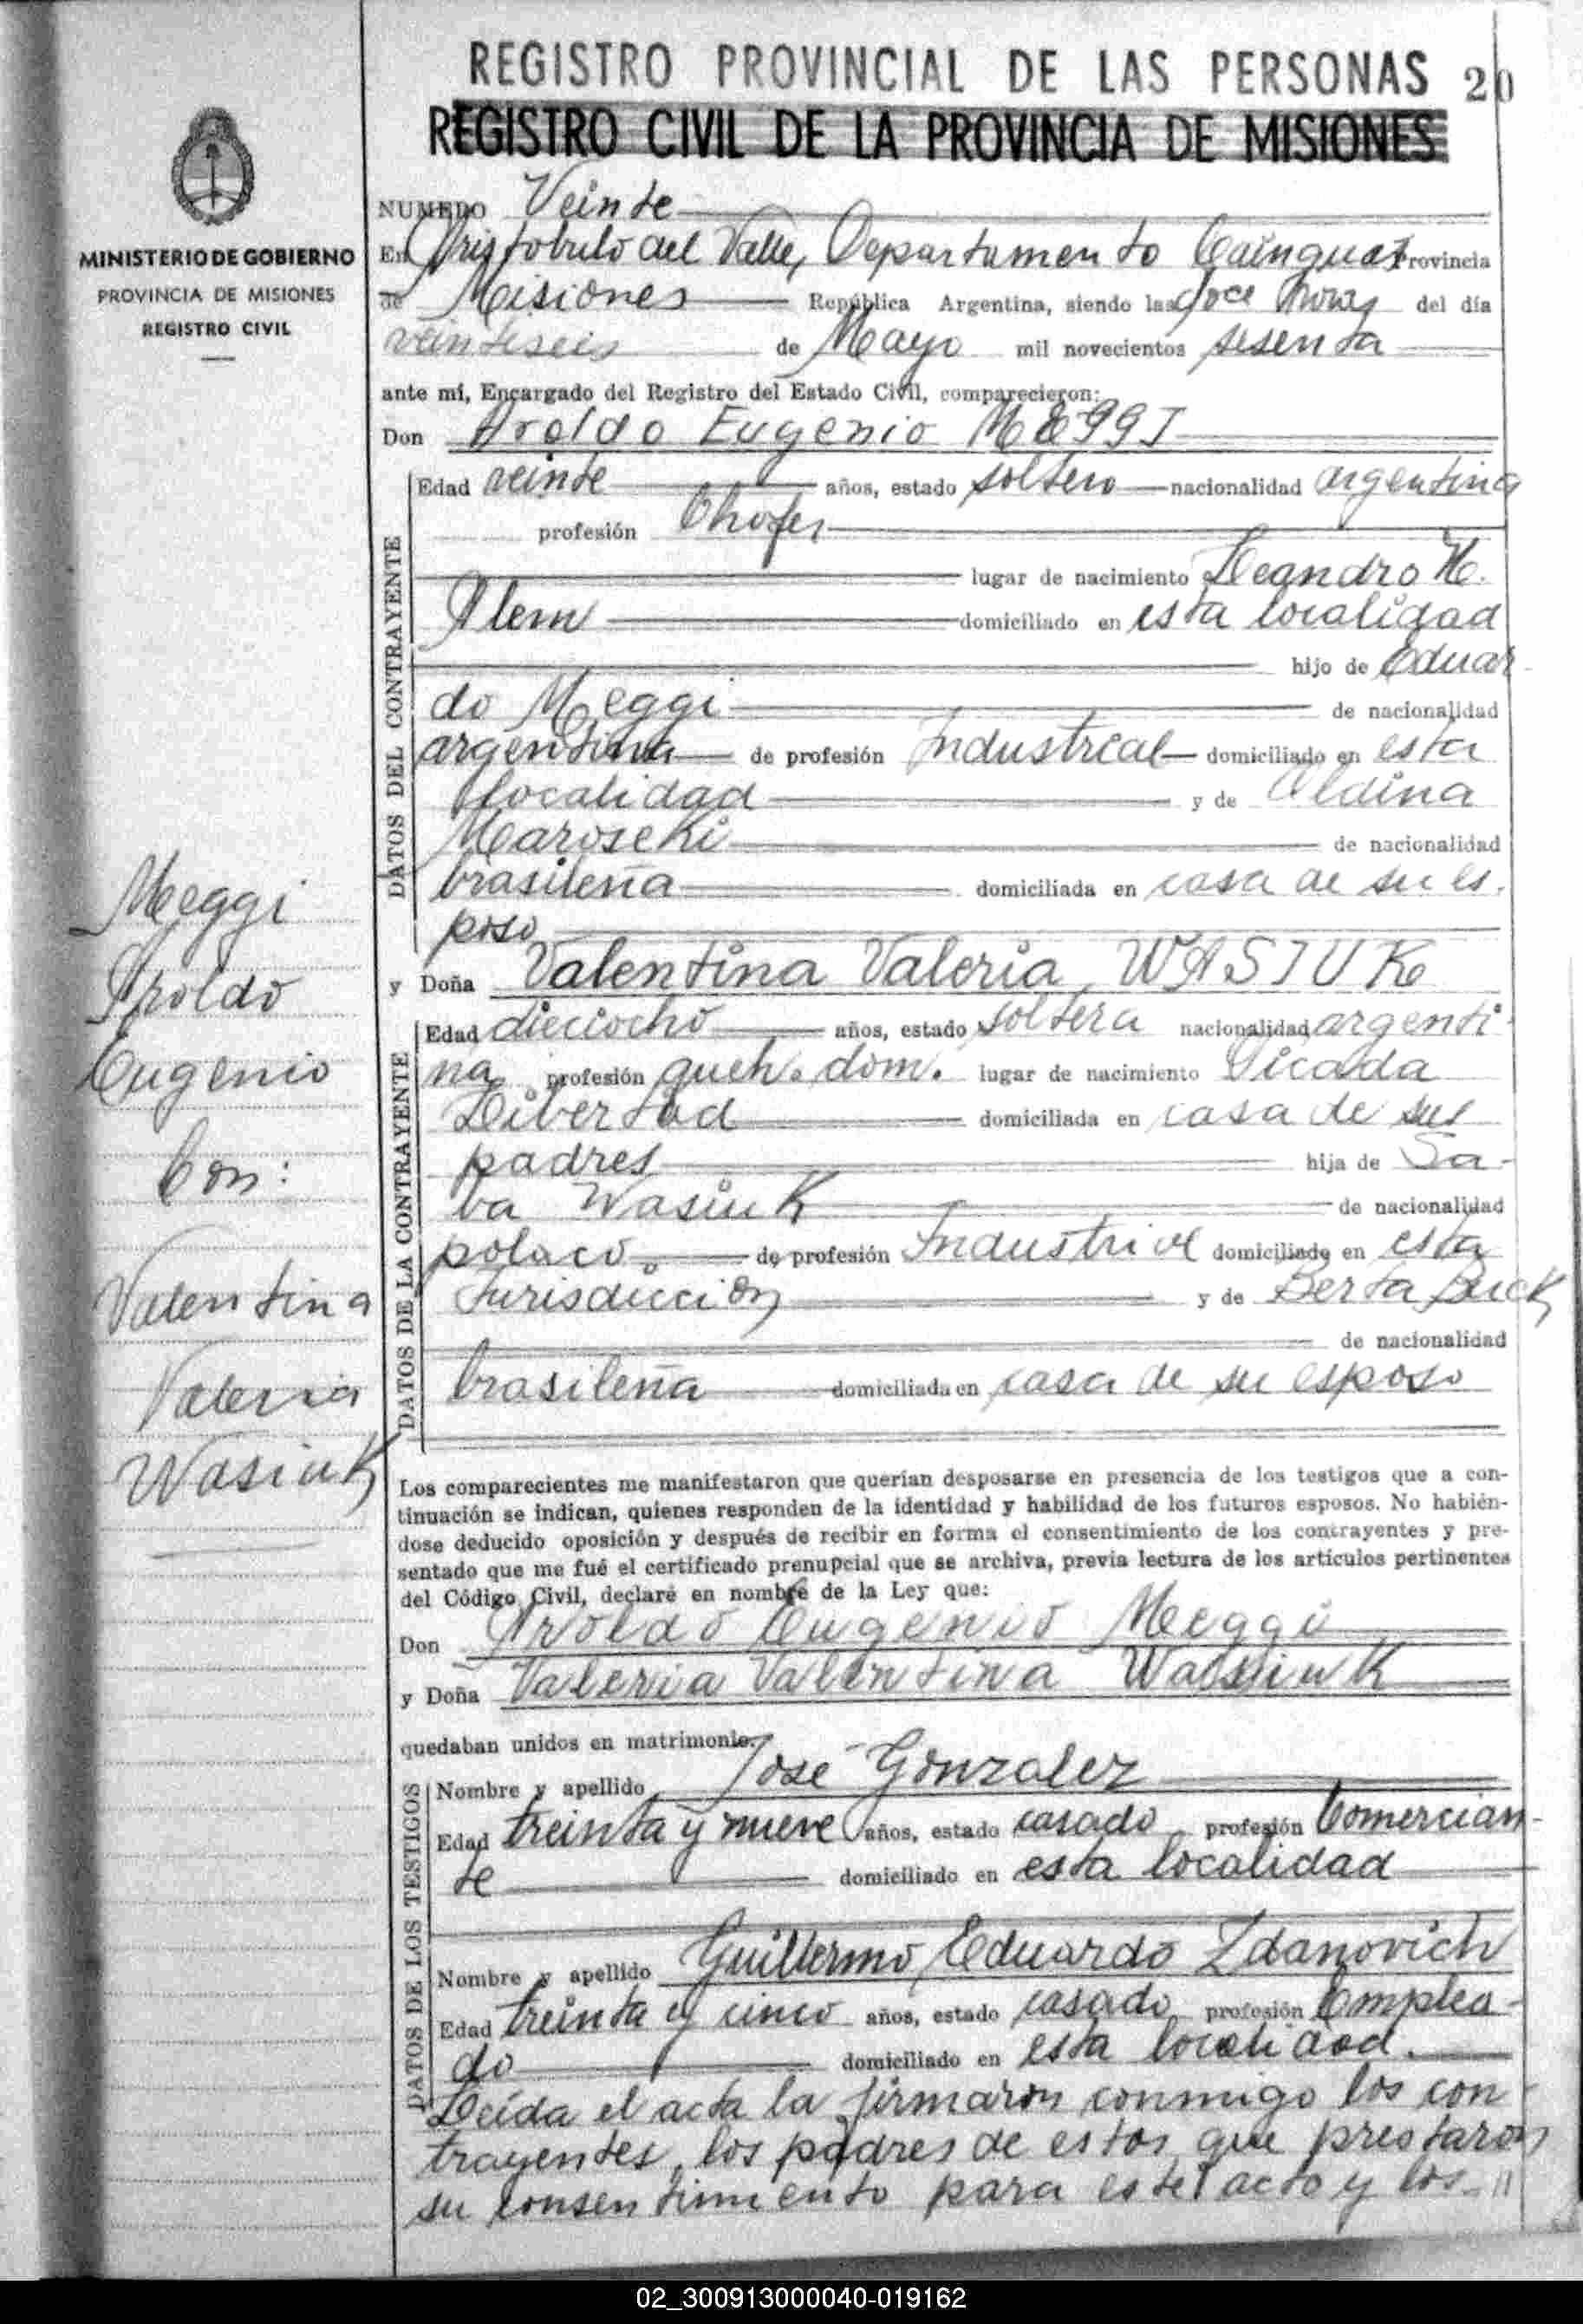 REGISTRO PROVINCIAL DE LAS PERSONAS 20
REGISTRO CIVIL DE LA PROVINCIA DE MISIONES
MINISTERIO DE GOBIERNO
PROVINCIA DE MISIONES
REGISTRO CIVIL
NUMERO Veinte
En Aristobulo del Valle, Departamento Cainguas Provincia
de Misiones República Argentina, siendo las doce horas del día
veintiseis de Mayo mil novecientos sesenta
ante mí, Encargado del Registro del Estado Civil, comparecieron:
Don Aroldo Eugenio MEGGI
DATOS DEL CONTRAYENTE
Edad veinte años, estado soltero nacionalidad argentina
profesión Chofer
lugar de nacimiento Leandro N.
Alem domiciliado en esta localidad
hijo de Eduar
do Meggi de nacionalidad
argentina de profesión Industrial domiciliado en esta
localidad y de Aldina
Maroseki de nacionalidad
brasileña domiciliada en casa de su es.
poso
y Doña Valentina Valeria WASIUK
DATOS DE LA CONTRAYENTE
Edad dieciocho años, estado soltera nacionalidad argenti-
na profesión queh. dom. lugar de nacimiento Picada
Libertad domiciliada en casa de sus
padres hija de Sa-
ba Wasiuk de nacionalidad
polaco de profesión Industrial domiciliado en esta
Jurisdiccion y de Berta Buck
de nacionalidad
brasileña domiciliada en casa de su esposo
Meggi
Aroldo
Eugenio
Con:
Valentina
Valeria
Wasiuk
Los comparecientes me manifestaron que querían desposarse en presencia de los testigos que a con-
tinuación se indican, quienes responden de la identidad y habilidad de los futuros esposos. No habién-
dose deducido oposición y después de recibir en forma el consentimiento de los contrayentes y pre-
sentado que me fué el certificado prenupcial que se archiva, previa lectura de los artículos pertinentes
del Código Civil, declaré en nombre de la Ley que:
Don Aroldo Eugenio Meggi
y Doña Valeria Valentina Wasiuk
quedaban unidos en matrimonio.
DATOS DE LOS TESTIGOS
Nombre y apellido José Gonzalez
Edad treinta y nueve años, estado casado profesión Comercian-
te domiciliado en esta localidad
Nombre y apellido Guillermo Eduardo Zdanovich
Edad treinta y cinco años, estado casado profesión Emplea-
do domiciliado en esta localidad.
Leída el acta la firmaron conmigo los con-
trayentes, los padres de estos que prestaron
su consentimiento para este acto y los //
02_300913000040-019162